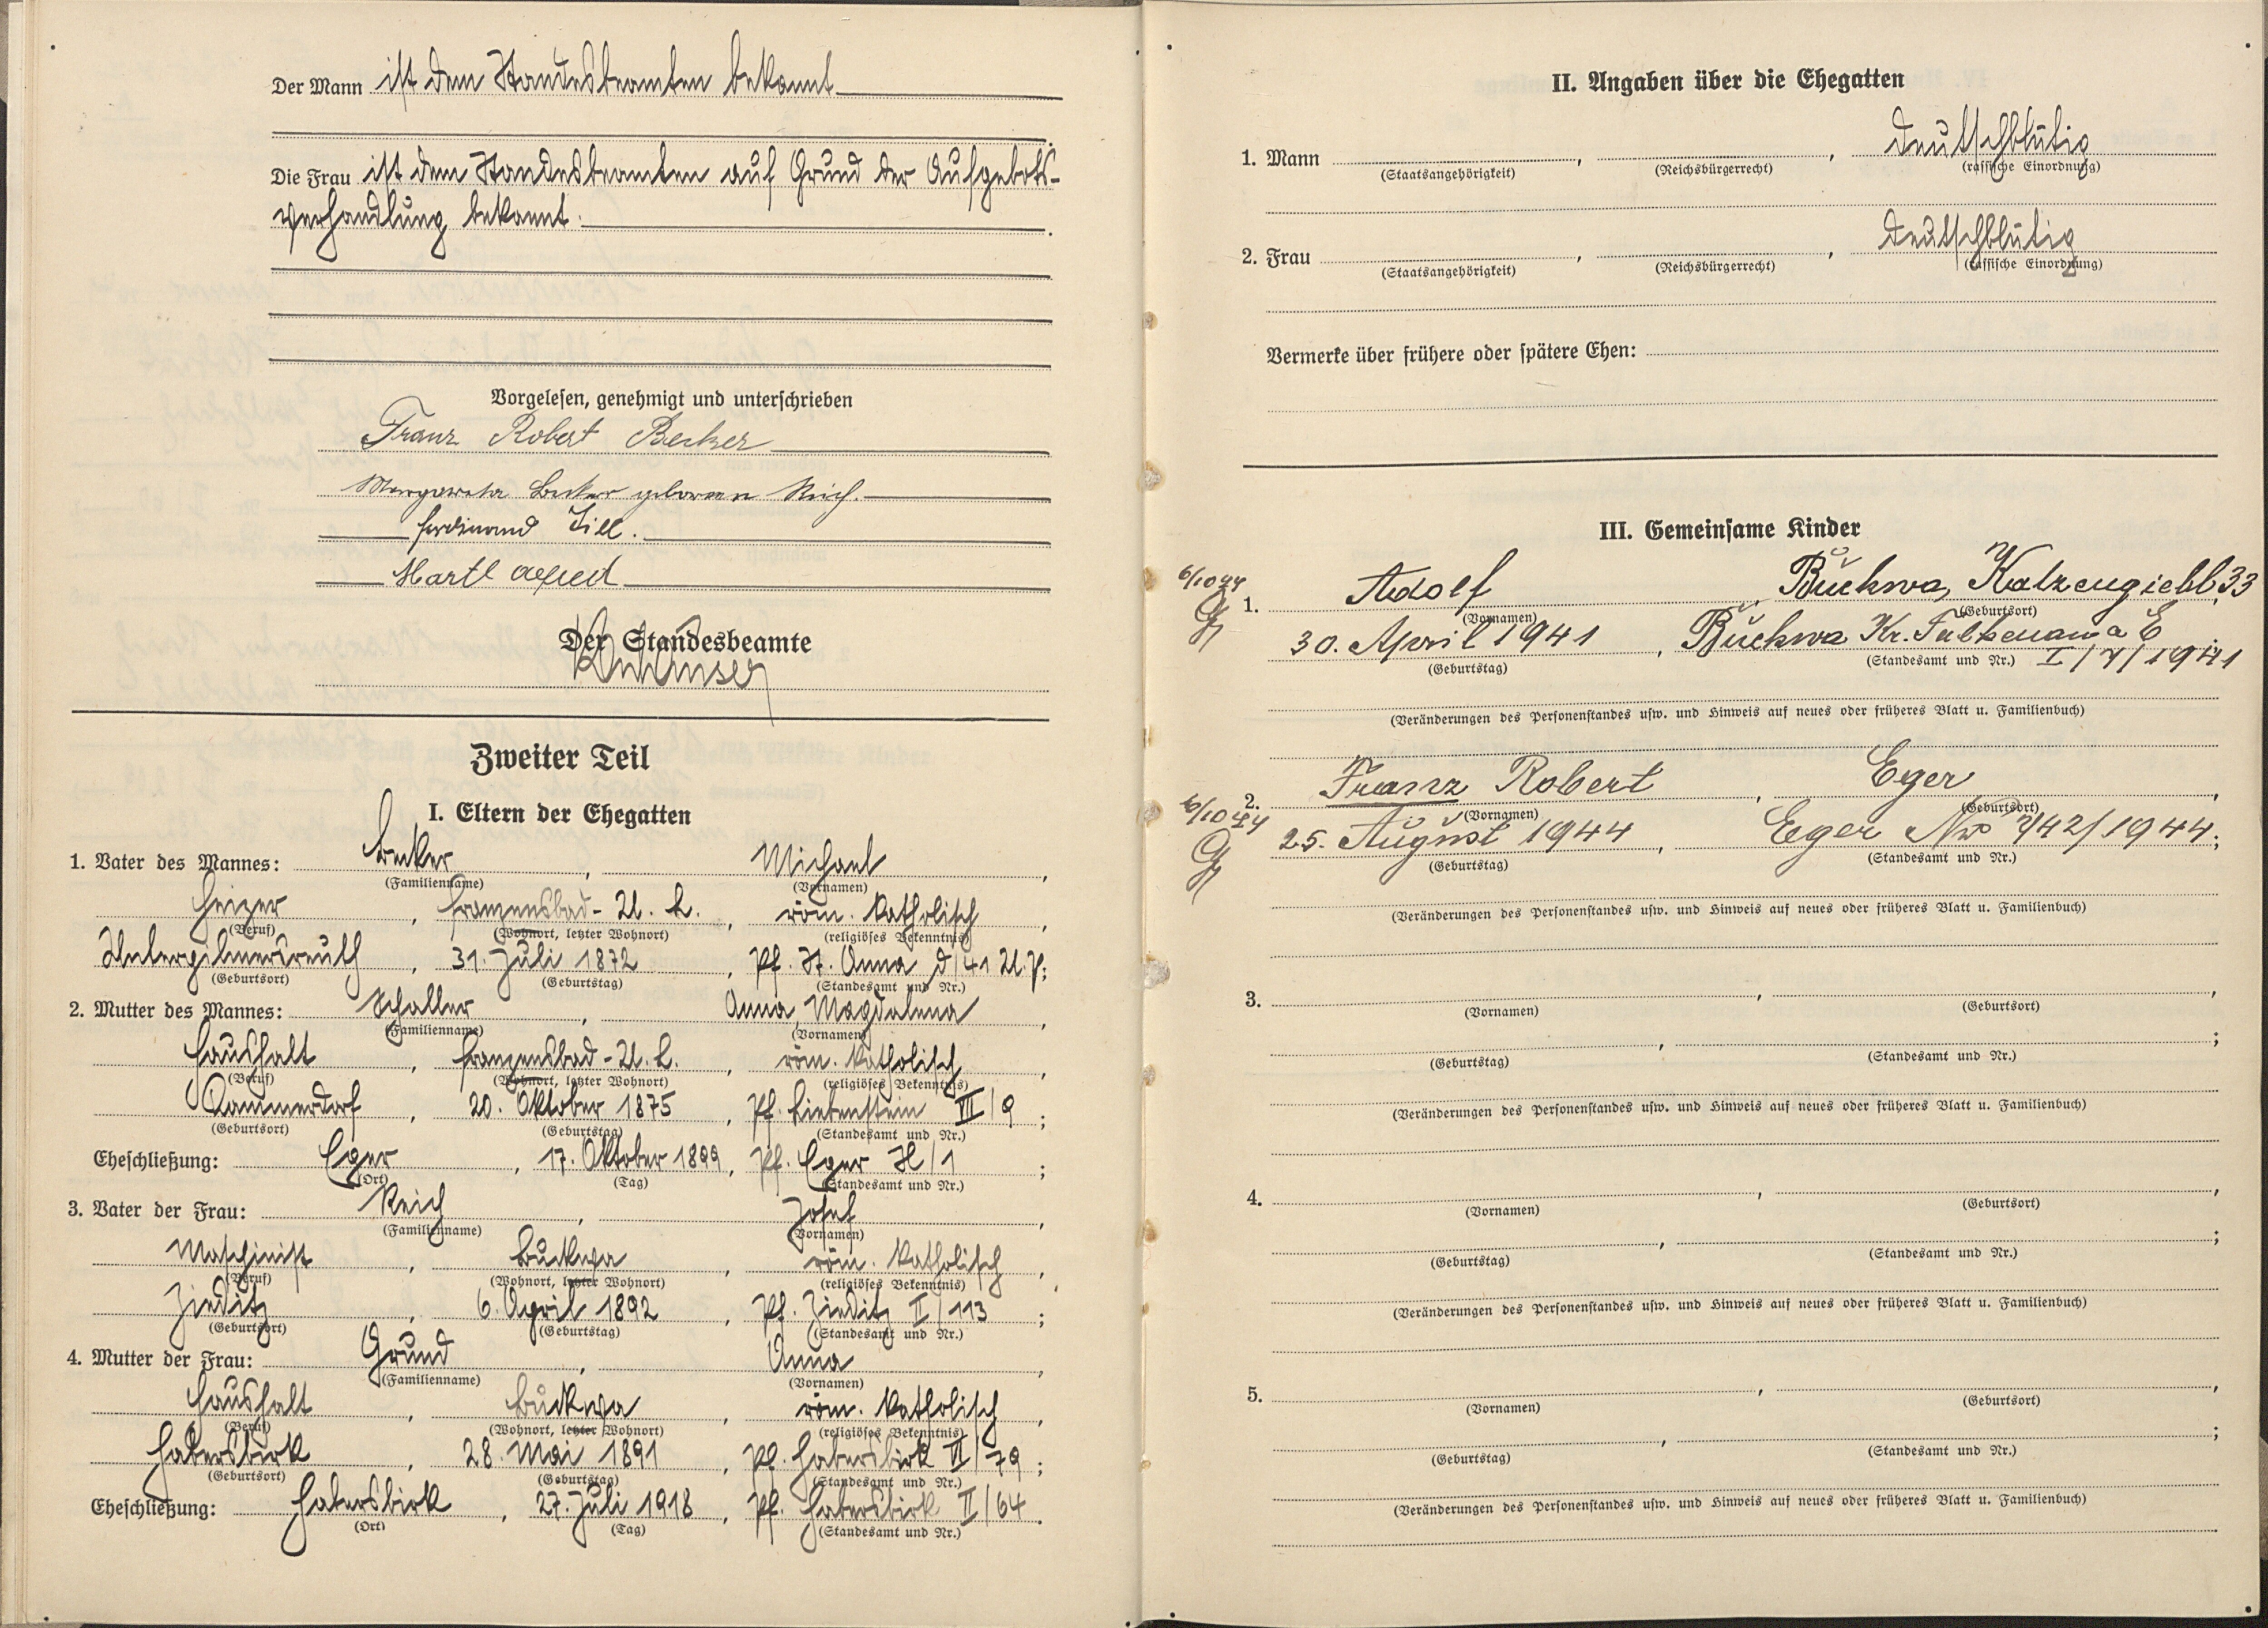 Der Mann ist dem Standesbeamten bekannt
Die Frau ist dem Standesbeamten auf Grund der Aufgebots-
verhandlung bekannt.
Vorgelesen, genehmigt und unterschrieben
Franz Robert Becker
Margareta Becker geborene Reich.
Ferdinand Till.
Hartl Alfred
Der Standesbeamte
Zweiter Teil
I. Eltern der Ehegatten
1. Vater des Mannes: Becker, Michael,
(Familienname) (Vornamen)
Heizer, Franzensbad - U. L., röm. katholisch,
(Beruf) (Wohnort, letzter Wohnort) (religiöses Bekenntnis)
Unterpilmersreuth, 31. Juli 1872, Pf. St. Anna d/41 U.P.;
(Geburtsort) (Geburtstag) (Standesamt und Nr.)
2. Mutter des Mannes: Schaller, Anna, Magdalena,
(Familienname) (Vornamen)
Haushalt, Franzensbad - U. L., röm. katholisch,
(Beruf) (Wohnort, letzter Wohnort) (religiöses Bekenntnis)
Rommersdorf, 20. Oktober 1875, Pf. Liebenstein VII/9;
(Geburtsort) (Geburtstag) (Standesamt und Nr.)
Eheschließung: Eger, 17. Oktober 1899, Pf. Eger H/1;
(Ort) (Tag) (Standesamt und Nr.)
3. Vater der Frau: Reich, Josef,
(Familienname) (Vornamen)
Maschinist, Buckwa, röm. katholisch,
(Beruf) (Wohnort, letzter Wohnort) (religiöses Bekenntnis)
Zieditz, 6. April 1892, Pf. Zieditz II/113;
(Geburtsort) (Geburtstag) (Standesamt und Nr.)
4. Mutter der Frau: Grund, Anna,
(Familienname) (Vornamen)
Haushalt, Buckwa, röm. katholisch,
(Beruf) (Wohnort, letzter Wohnort) (religiöses Bekenntnis)
Habersbirk, 28. Mai 1891, Pf. Habersbirk VI/79;
(Geburtsort) (Geburtstag) (Standesamt und Nr.)
Eheschließung: Habersbirk, 27. Juli 1918, Pf. Habersbirk II/64.
(Ort) (Tag) (Standesamt und Nr.)
II. Angaben über die Ehegatten
1. Mann , , deutschblütig
(Staatsangehörigkeit) (Reichsbürgerrecht) (rassische Einordnung)
2. Frau , , deutschblütig
(Staatsangehörigkeit) (Reichsbürgerrecht) (rassische Einordnung)
Vermerke über frühere oder spätere Ehen:
III. Gemeinsame Kinder
6/10 44
1. Adolf, Buckwa, Katzengiebl 33,
(Vornamen) (Geburtsort)
30. April 1941, Buckwa Kr. Falkenau a E
(Geburtstag) (Standesamt und Nr.) I/7/1941
(Veränderungen des Personenstandes usw. und Hinweis auf neues oder früheres Blatt u. Familienbuch)
6/10 44
2. Franz Robert, Eger,
(Vornamen) (Geburtsort)
25. August 1944, Eger No 742/1944;
(Geburtstag) (Standesamt und Nr.)
(Veränderungen des Personenstandes usw. und Hinweis auf neues oder früheres Blatt u. Familienbuch)
3. , ,
(Vornamen) (Geburtsort)
, ;
(Geburtstag) (Standesamt und Nr.)
(Veränderungen des Personenstandes usw. und Hinweis auf neues oder früheres Blatt u. Familienbuch)
4. , ,
(Vornamen) (Geburtsort)
, ;
(Geburtstag) (Standesamt und Nr.)
(Veränderungen des Personenstandes usw. und Hinweis auf neues oder früheres Blatt u. Familienbuch)
5. , ,
(Vornamen) (Geburtsort)
, ;
(Geburtstag) (Standesamt und Nr.)
(Veränderungen des Personenstandes usw. und Hinweis auf neues oder früheres Blatt u. Familienbuch)